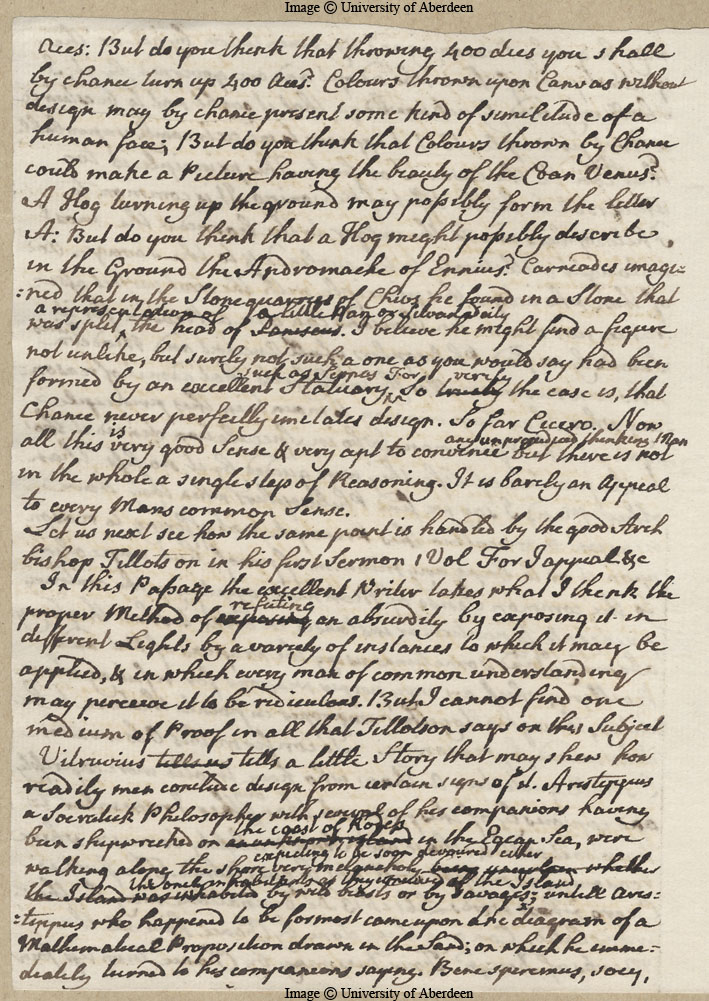 Image © University of Aberdeen
Aces: But do you think that throwing 400 dies you shall
by chance turn up 400 Aces? Colours thrown upon Canvas without
design may by chance present some kind of similitude of a
human face; But do you think that Colours thrown by Chance
could make a Picture having the beauty of the Coan Venus?
A Hog turning up the ground may possibly form the letter
A: But do you think that a Hog might possibly describe
in the Ground the Andromache of Ennius? Carneades imagi=
=ned that in the Stone quarrys of Chios he found in a Stone that
a representation of a little Pan or sylvan deity
was split, the head of I believe he might find a figure
not unlike, but surely not such a one as you would say had been
such as Scopas For very
formed by an excellent Statuary So truely the case is, that
Chance never perfectly imitates design. So far Cicero. Now
is any unprejudiced thinking Man
all this very good Sense & very apt to convince but there is not
in the whole a single step of Reasoning. It is barely an Appeal
to every Mans common Sense.
Let us next see how the same point is handled by the good Arch
bishop Tillotson in his first Sermon 1 Vol For I appeal &c
In this Passage the excellent Writer takes what I think the
refuting
proper Method of exposing an absurdity by exposing it in
different Lights by a variety of instances to which it may be
applied, & in which every man of common understanding
may perceive it to be ridiculous. But I cannot find one
medium of Proof in all that Tillotson says on this Subject
Vitruvius tells us tells a little Story that may shew how
readily men conclude design from certain signs of it. Aristippus
a Socratick Philosopher with several of his companions having
the coast of Rodes
been shipwrecked on an unknown Island in the Egean Sea, were
expecting to be soon devoured either
walking along the shore very melancholy being uncertain whether
the only inhabitants as they conceived of the Island
the Island was inhabited by wild beasts or by Savages; untill Aris=
=tippus who happened to be formost came upon the diagram of a
Mathematical Proposition drawn in the Sand; on which he imme=
diately turned to his companions saying. Bene speremus, socij,
Image © University of Aberdeen